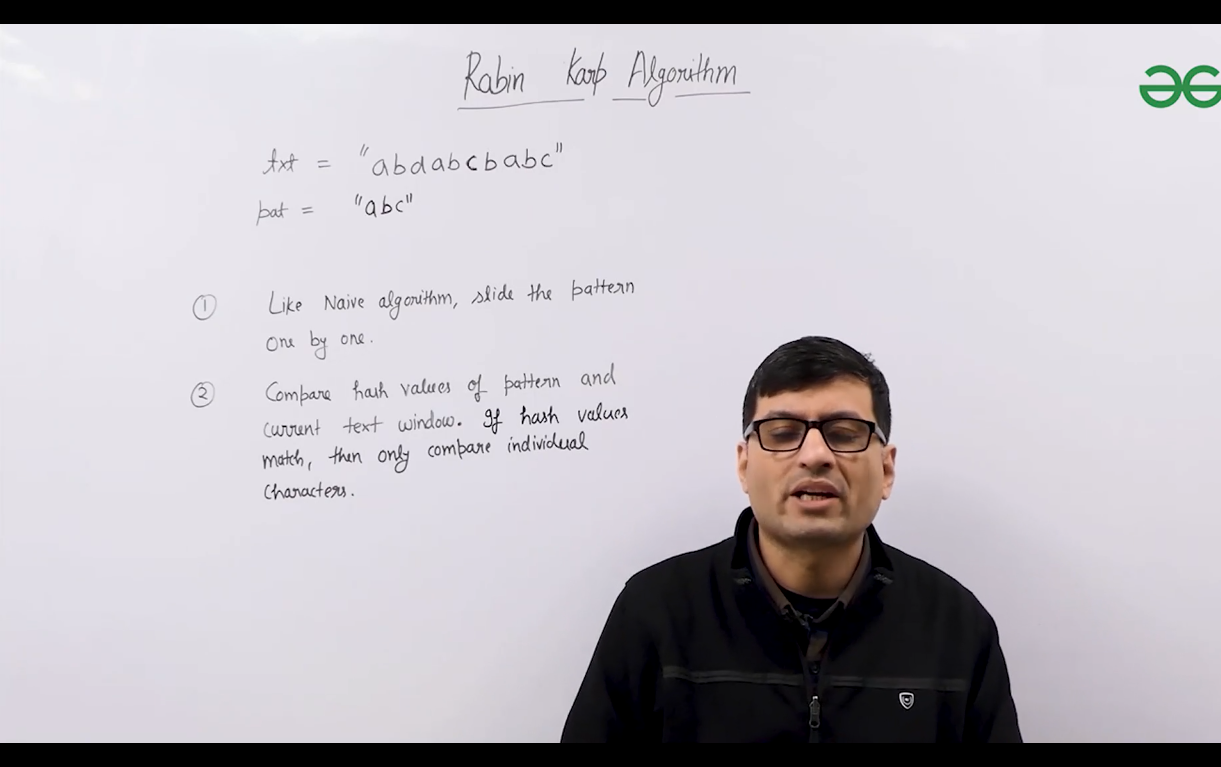 Rabin Karp Algorithm
txt = "abdabcbabc"
pat = "abc"
① Like Naive algorithm, slide the pattern
one by one.
② Compare hash values of pattern and
current text window. If hash values
match, then only compare individual
characters.